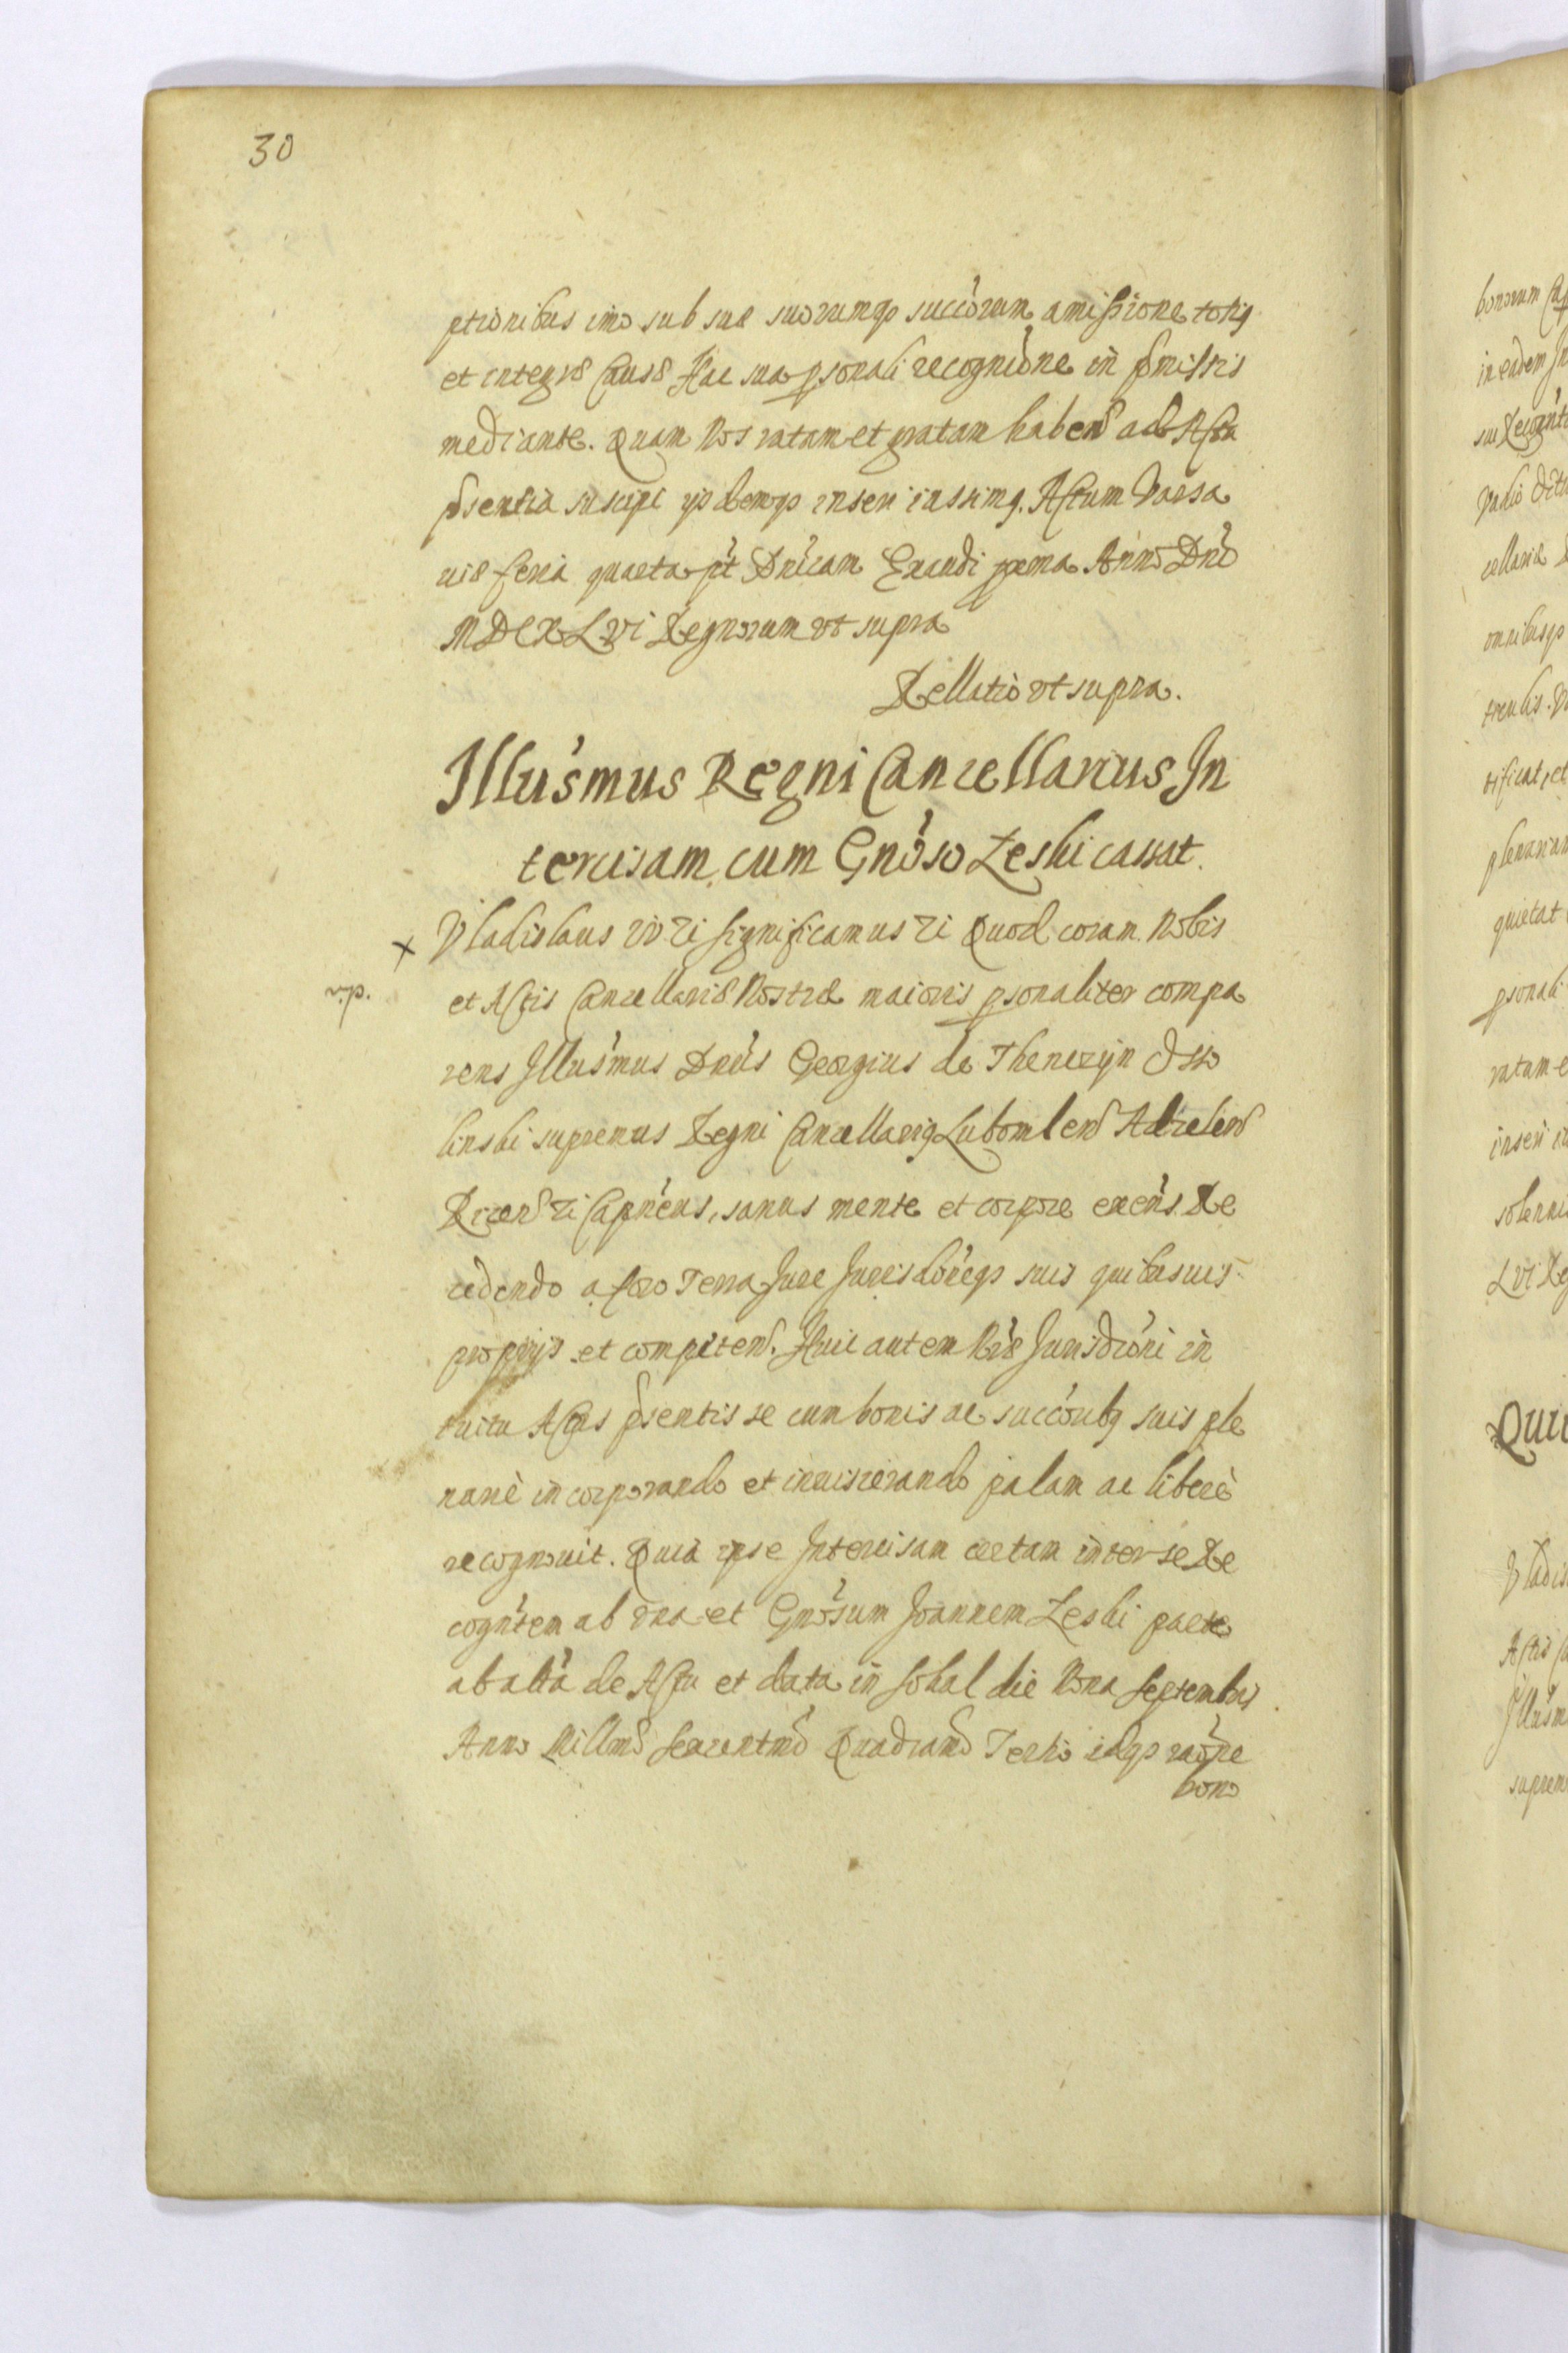 30
ptionibus imo sub sua suorumqȝ succorum amissione totiꝯ
et integræ Causæ Hac sua psonali recognitione in pmissis
mediante. Quam Nos ratam et gratam haben ad Acta
psentia suscipi ijsdemqȝ inseri iussimꝯ. Actum Varsa
uiæ feria quarta pt Dnicam Exaudi pxma Anno Dni
MDCXLVI Regnorum vt supra
Rellatio vt supra.
Illusmus Regni Cancellarius In
tercisam cum Gnoso Leski cassat.
Vladislaus IV zc significamus zc Quod coram Nobis
et Actis Cancellariæ Nostræ maioris psonaliter compa
rens Illusmus Dnus Georgius de Thenczyn Osso
linski supremus Regni Cancellariꝯ Lubomlen Adzelen
Ricen zc Capneus, sanus mente et corpore exens Re
cedendo a foro Terra Jure Jurisdoneqȝ suis quibusuis
proprijs et competen. Huic autem Nræ Jurisdictioni in
tuitu Actus psentis se cum bonis ac succoribꝯ suis ple
narie incorporando et inuiscerando palam ac libere
recognouit. Quia ipse Intercisam certam inter se Re
cogntem ab vna et Gnosum Joannem Leski parte
ab altra de Actu et data in Sokal die Nona Septembris
Anno Millmo Sexcentmo Quadramo Tertio eaqȝ raone
bono
v.p.
bonorum
in eadem
sui Recognit
vadio
cellariæ
omnibusqȝ
tificat, et
quietat
psonali
ratam e
inseri iu
LVI Reg
Vladis
Actis Ca
Illusm
suprem